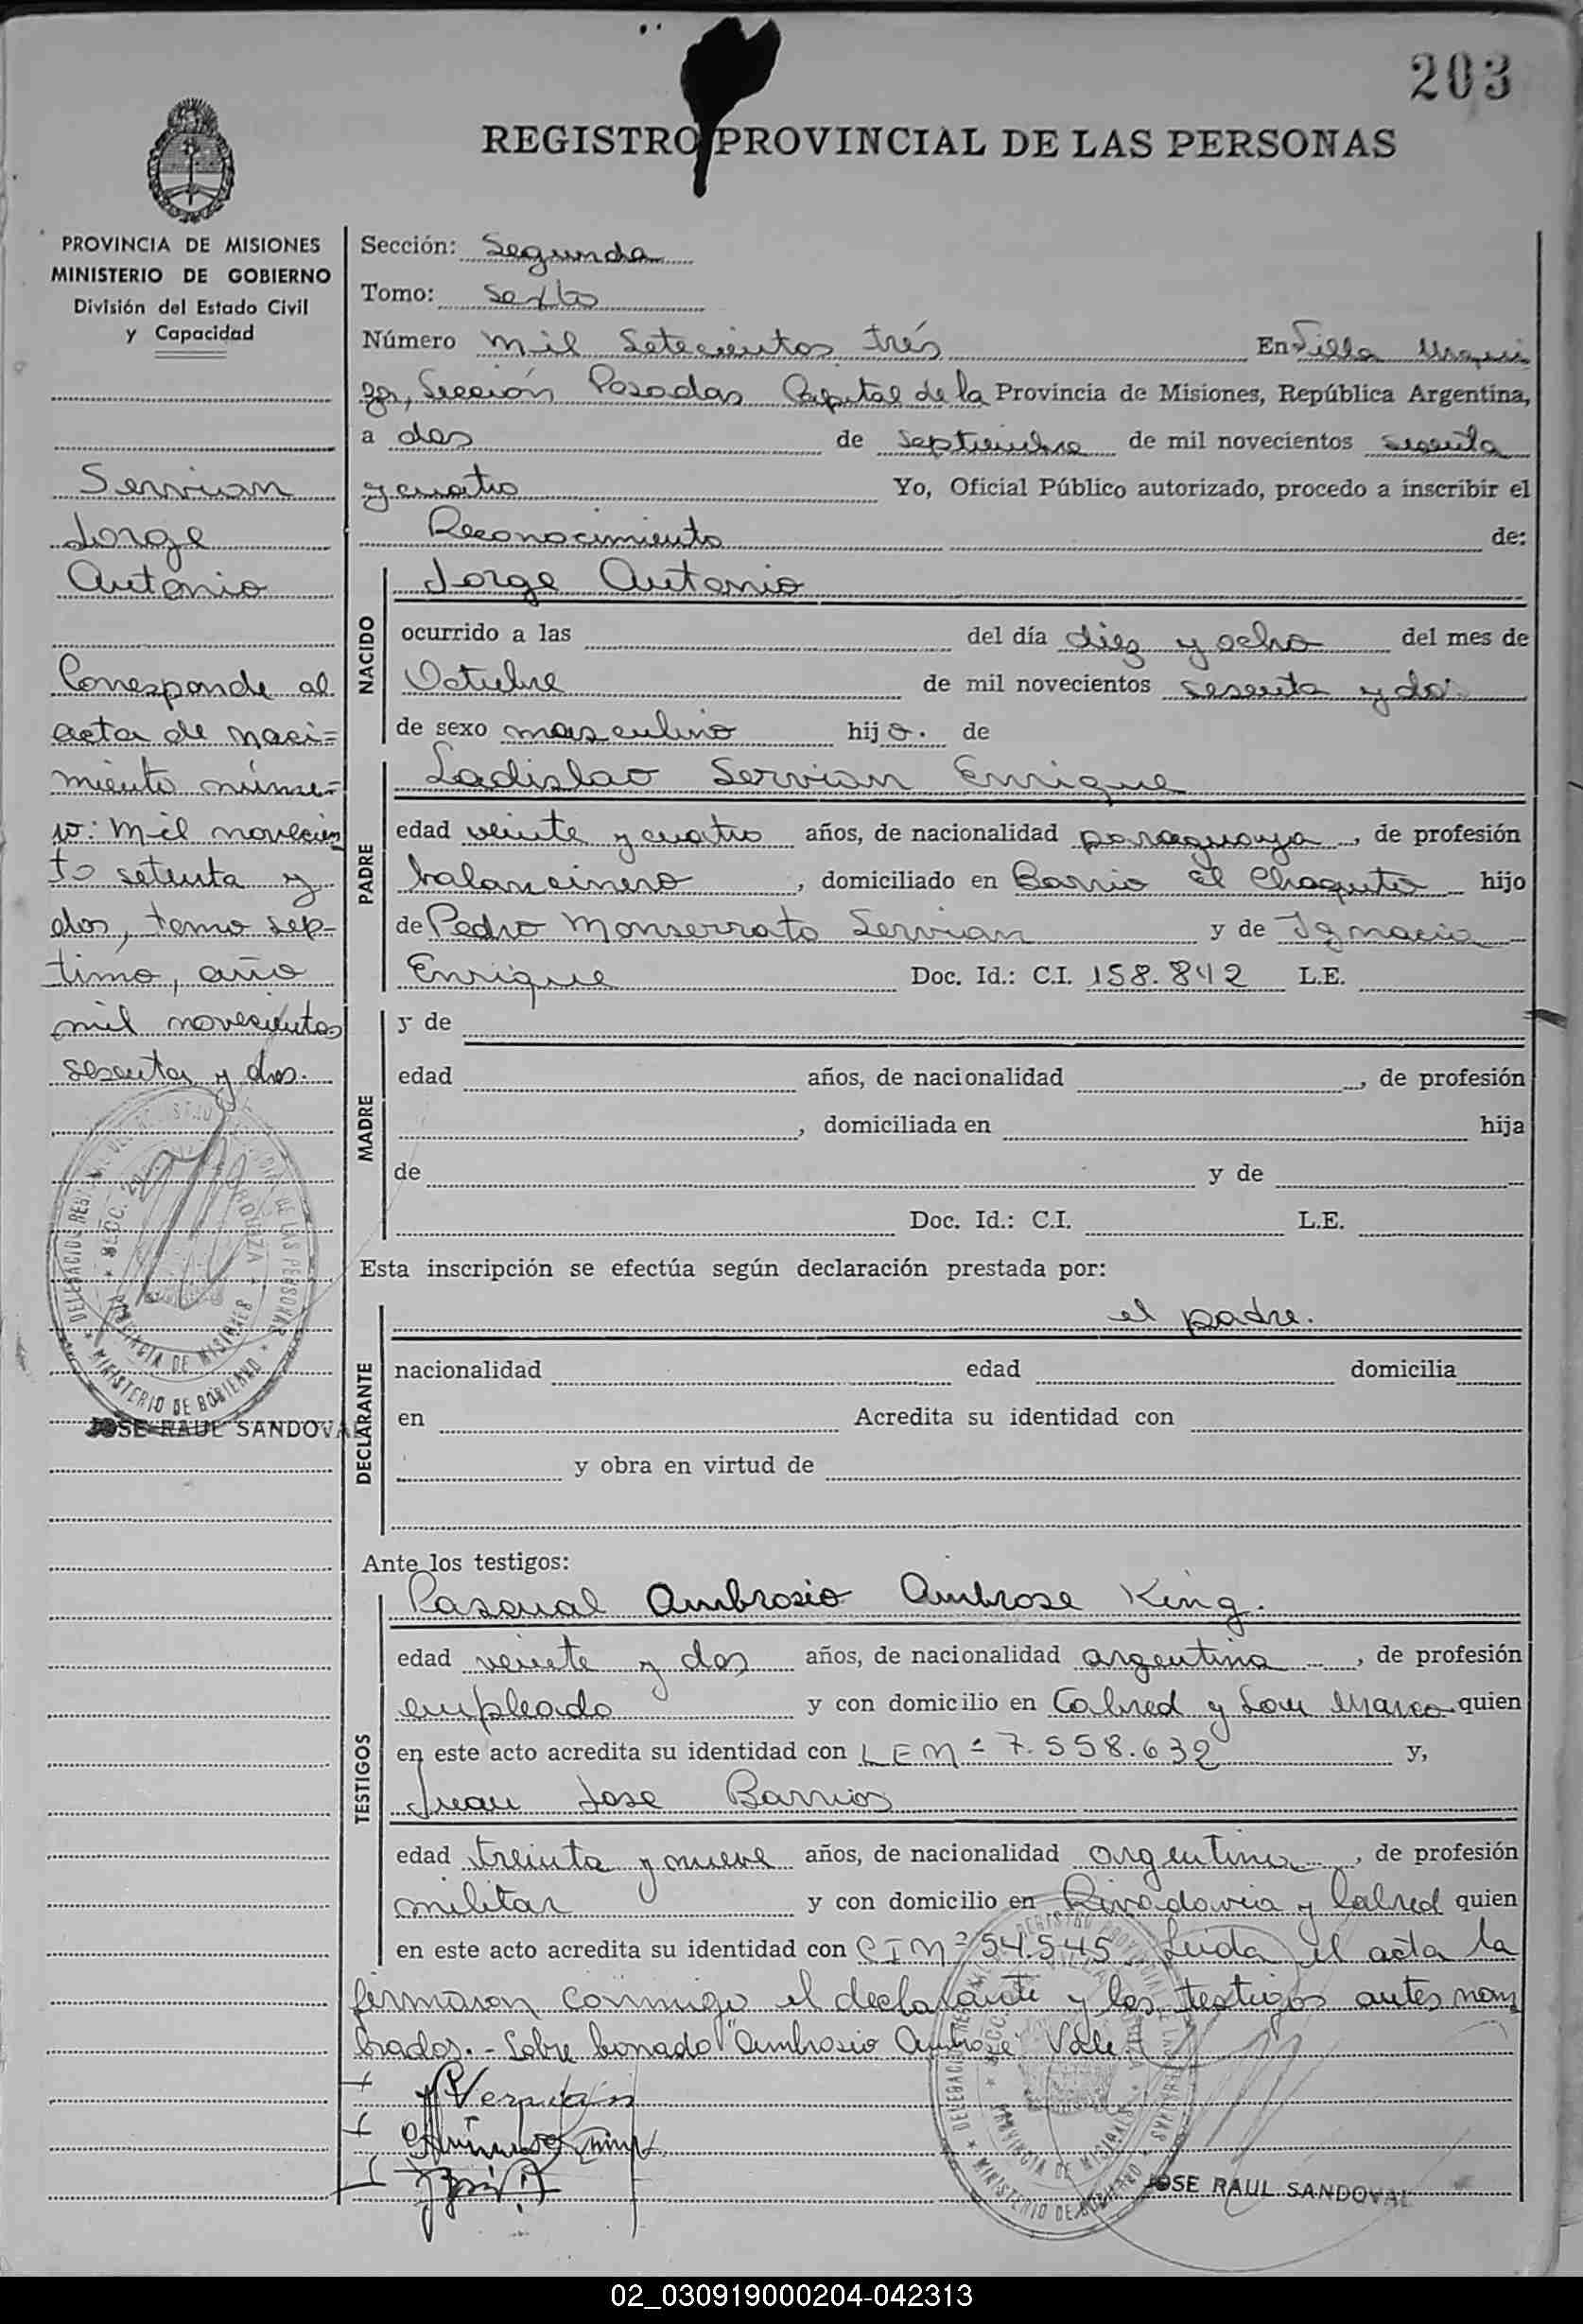 203
REGISTRO PROVINCIAL DE LAS PERSONAS
PROVINCIA DE MISIONES
MINISTERIO DE GOBIERNO
División del Estado Civil
y Capacidad
Servian
Jorge
Antonio
Corresponde al
acta de naci=
miento núme=
ro: mil novecien
to setenta y
dos, tomo sep-
timo, año
mil novecientos
sesenta y dos.
JOSE RAUL SANDOVAL
Sección: Segunda
Tomo: sexto
Número mil setecientos trés En Villa Urqui
za, Sección Posadas Capital de la Provincia de Misiones, República Argentina,
a dos de septiembre de mil novecientos sesenta
y cuatro Yo, Oficial Público autorizado, procedo a inscribir el
Reconocimiento de:
NACIDO
Jorge Antonio
ocurrido a las del día diez y ocho del mes de
Octubre de mil novecientos sesenta y dos
de sexo masculino hijo. de
PADRE
Ladislao Servian Enrique
edad veinte y cuatro años, de nacionalidad paraguaya, de profesión
balancinero, domiciliado en Barrio el Chaquito hijo
de Pedro Monserrato Servian y de Ignacia
Enrique Doc. Id.: C.I. 158.842 L.E.
MADRE
y de
edad años, de nacionalidad , de profesión
, domiciliada en hija
de y de
Doc. Id.: C.I. L.E.
Esta inscripción se efectúa según declaración prestada por:
DECLARANTE
el padre.
nacionalidad edad domicilia
en Acredita su identidad con
y obra en virtud de
Ante los testigos:
TESTIGOS
Pasqual Ambrosio Ambrose King.
edad veinte y dos años, de nacionalidad argentina, de profesión
empleado y con domicilio en Cabred y San Marco quien
en este acto acredita su identidad con LEM= 7.558.632 y,
Juan Jose Barrios
edad treinta y nueve años, de nacionalidad argentina, de profesión
militar y con domicilio en Rivadavia y Cabred quien
en este acto acredita su identidad con CINº 54.545 Leida el acta la
firmaron conmigo el declarante y los testigos antes nom
brados. - Sobre borrado "Ambrosio Ambrose" Vale
JOSE RAUL SANDOVAL
02_030919000204-042313